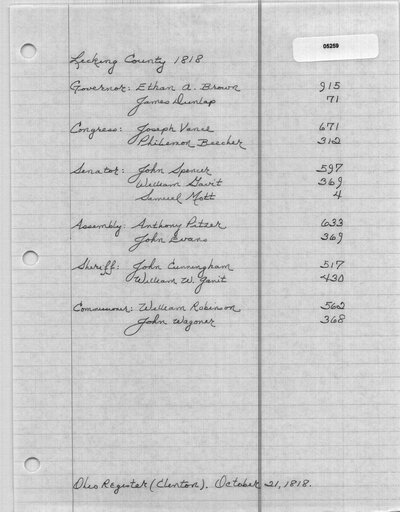 05259
Licking County 1818
Governor: Ethan A. Brown 915
James Dunlap 71
Congress: Joseph Vance 671
Philemon Beecher 312
Senator: John Spencer 597
William Gavit 369
Samuel Mott 4
Assembly: Anthony Pitzer 633
John Evans 369
Sheriff: John Cunningham 517
William W. Gavit 430
Commissioner: William Robinson 562
John Wagoner 368
Ohio Register (Clinton). October 21, 1818.